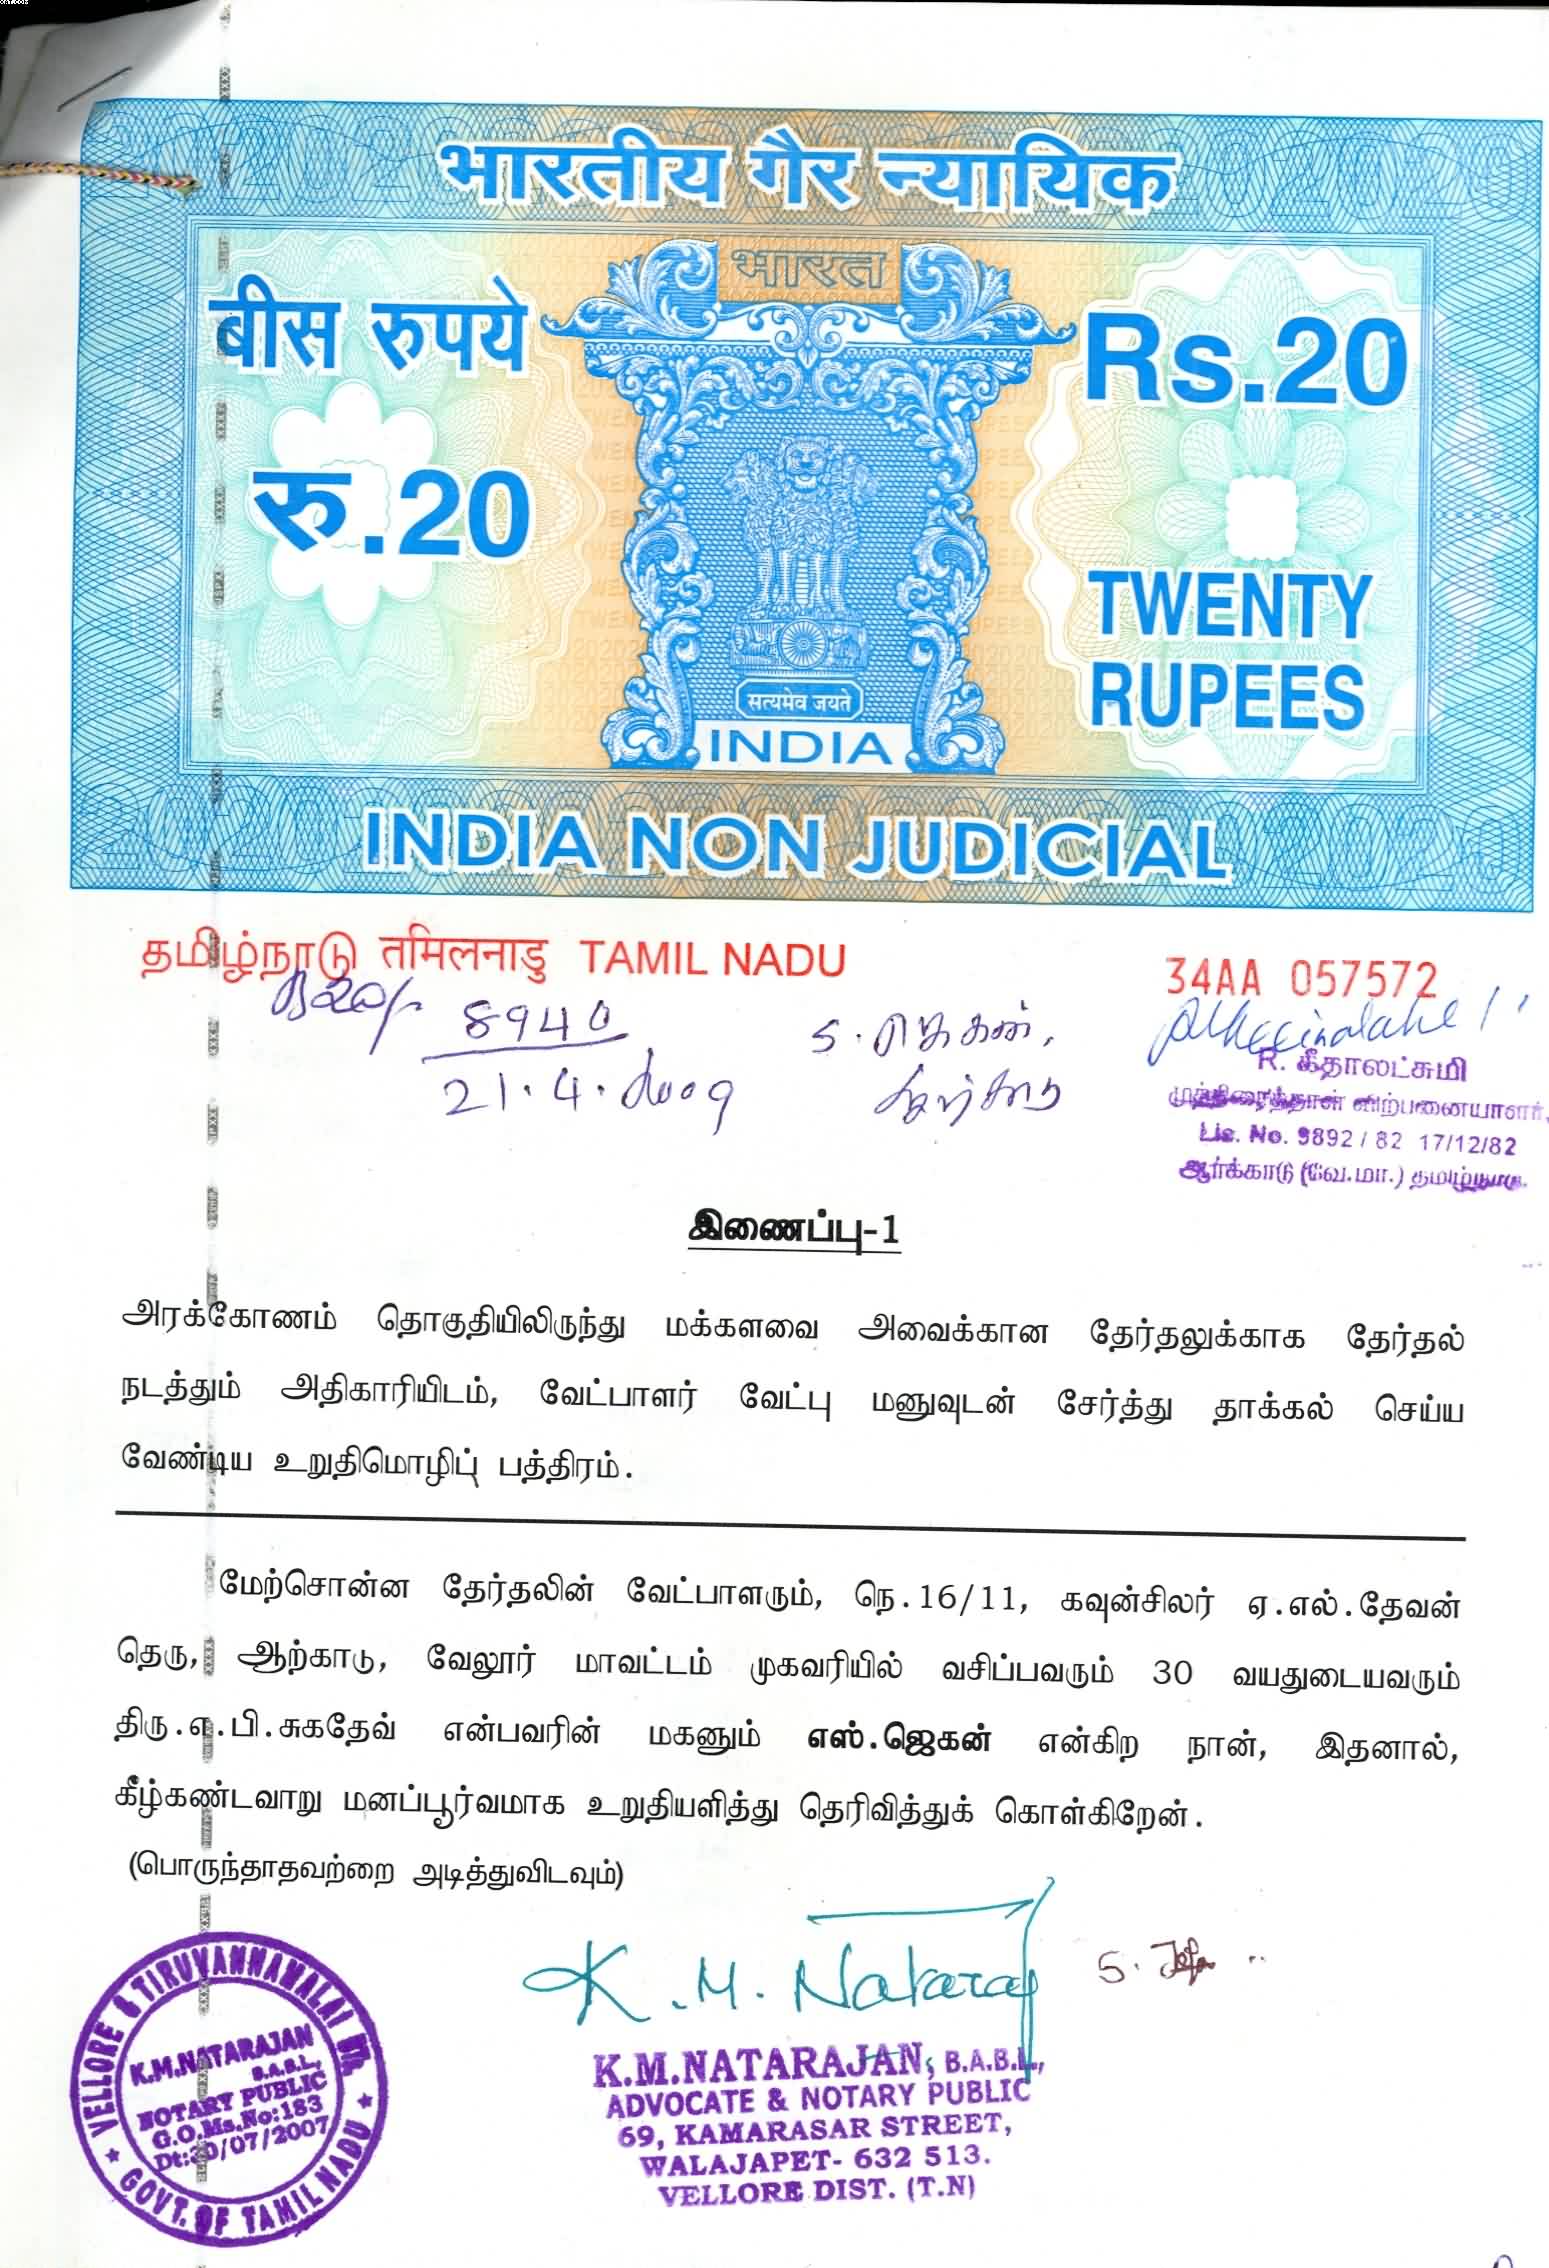 भारतीय गैर न्यायिक
भारत
बीस रुपये
Rs.20
रु.20
TWENTY
RUPEES
सत्यमेव जयते
INDIA
INDIA NON JUDICIAL
தமிழ்நாடு तमिलनाडु TAMIL NADU
34AA 057572
8940
21.4.2009
S. ஜெகன்,
ஆற்காடு
R. கீதாலட்சுமி
முத்திரைத்தாள் விற்பனையாளர்,
Lic. No. 9892 / 82 17/12/82
ஆர்க்காடு (வே.மா.) தமிழ்நாடு.
இணைப்பு-1
அரக்கோணம் தொகுதியிலிருந்து மக்களவை அவைக்கான தேர்தலுக்காக தேர்தல்
நடத்தும் அதிகாரியிடம், வேட்பாளர் வேட்பு மனுவுடன் சேர்த்து தாக்கல் செய்ய
வேண்டிய உறுதிமொழிப் பத்திரம்.
மேற்சொன்ன தேர்தலின் வேட்பாளரும், நெ.16/11, கவுன்சிலர் ஏ.எல்.தேவன்
தெரு, ஆற்காடு, வேலூர் மாவட்டம் முகவரியில் வசிப்பவரும் 30 வயதுடையவரும்
திரு.ஏ.பி.சுகதேவ் என்பவரின் மகனும் எஸ்.ஜெகன் என்கிற நான், இதனால்,
கீழ்கண்டவாறு மனப்பூர்வமாக உறுதியளித்து தெரிவித்துக் கொள்கிறேன்.
(பொருந்தாதவற்றை அடித்துவிடவும்)
K. M. Nataraj
VELLORE & TIRUVANNAMALAI DTS.
K.M.NATARAJAN
B.A.B.L.,
NOTARY PUBLIC
G.O.Ms.No:183
Dt:30/07/2007
GOVT. OF TAMIL NADU
K.M.NATARAJAN, B.A.B.L.,
ADVOCATE & NOTARY PUBLIC
69, KAMARASAR STREET,
WALAJAPET- 632 513.
VELLORE DIST. (T.N)